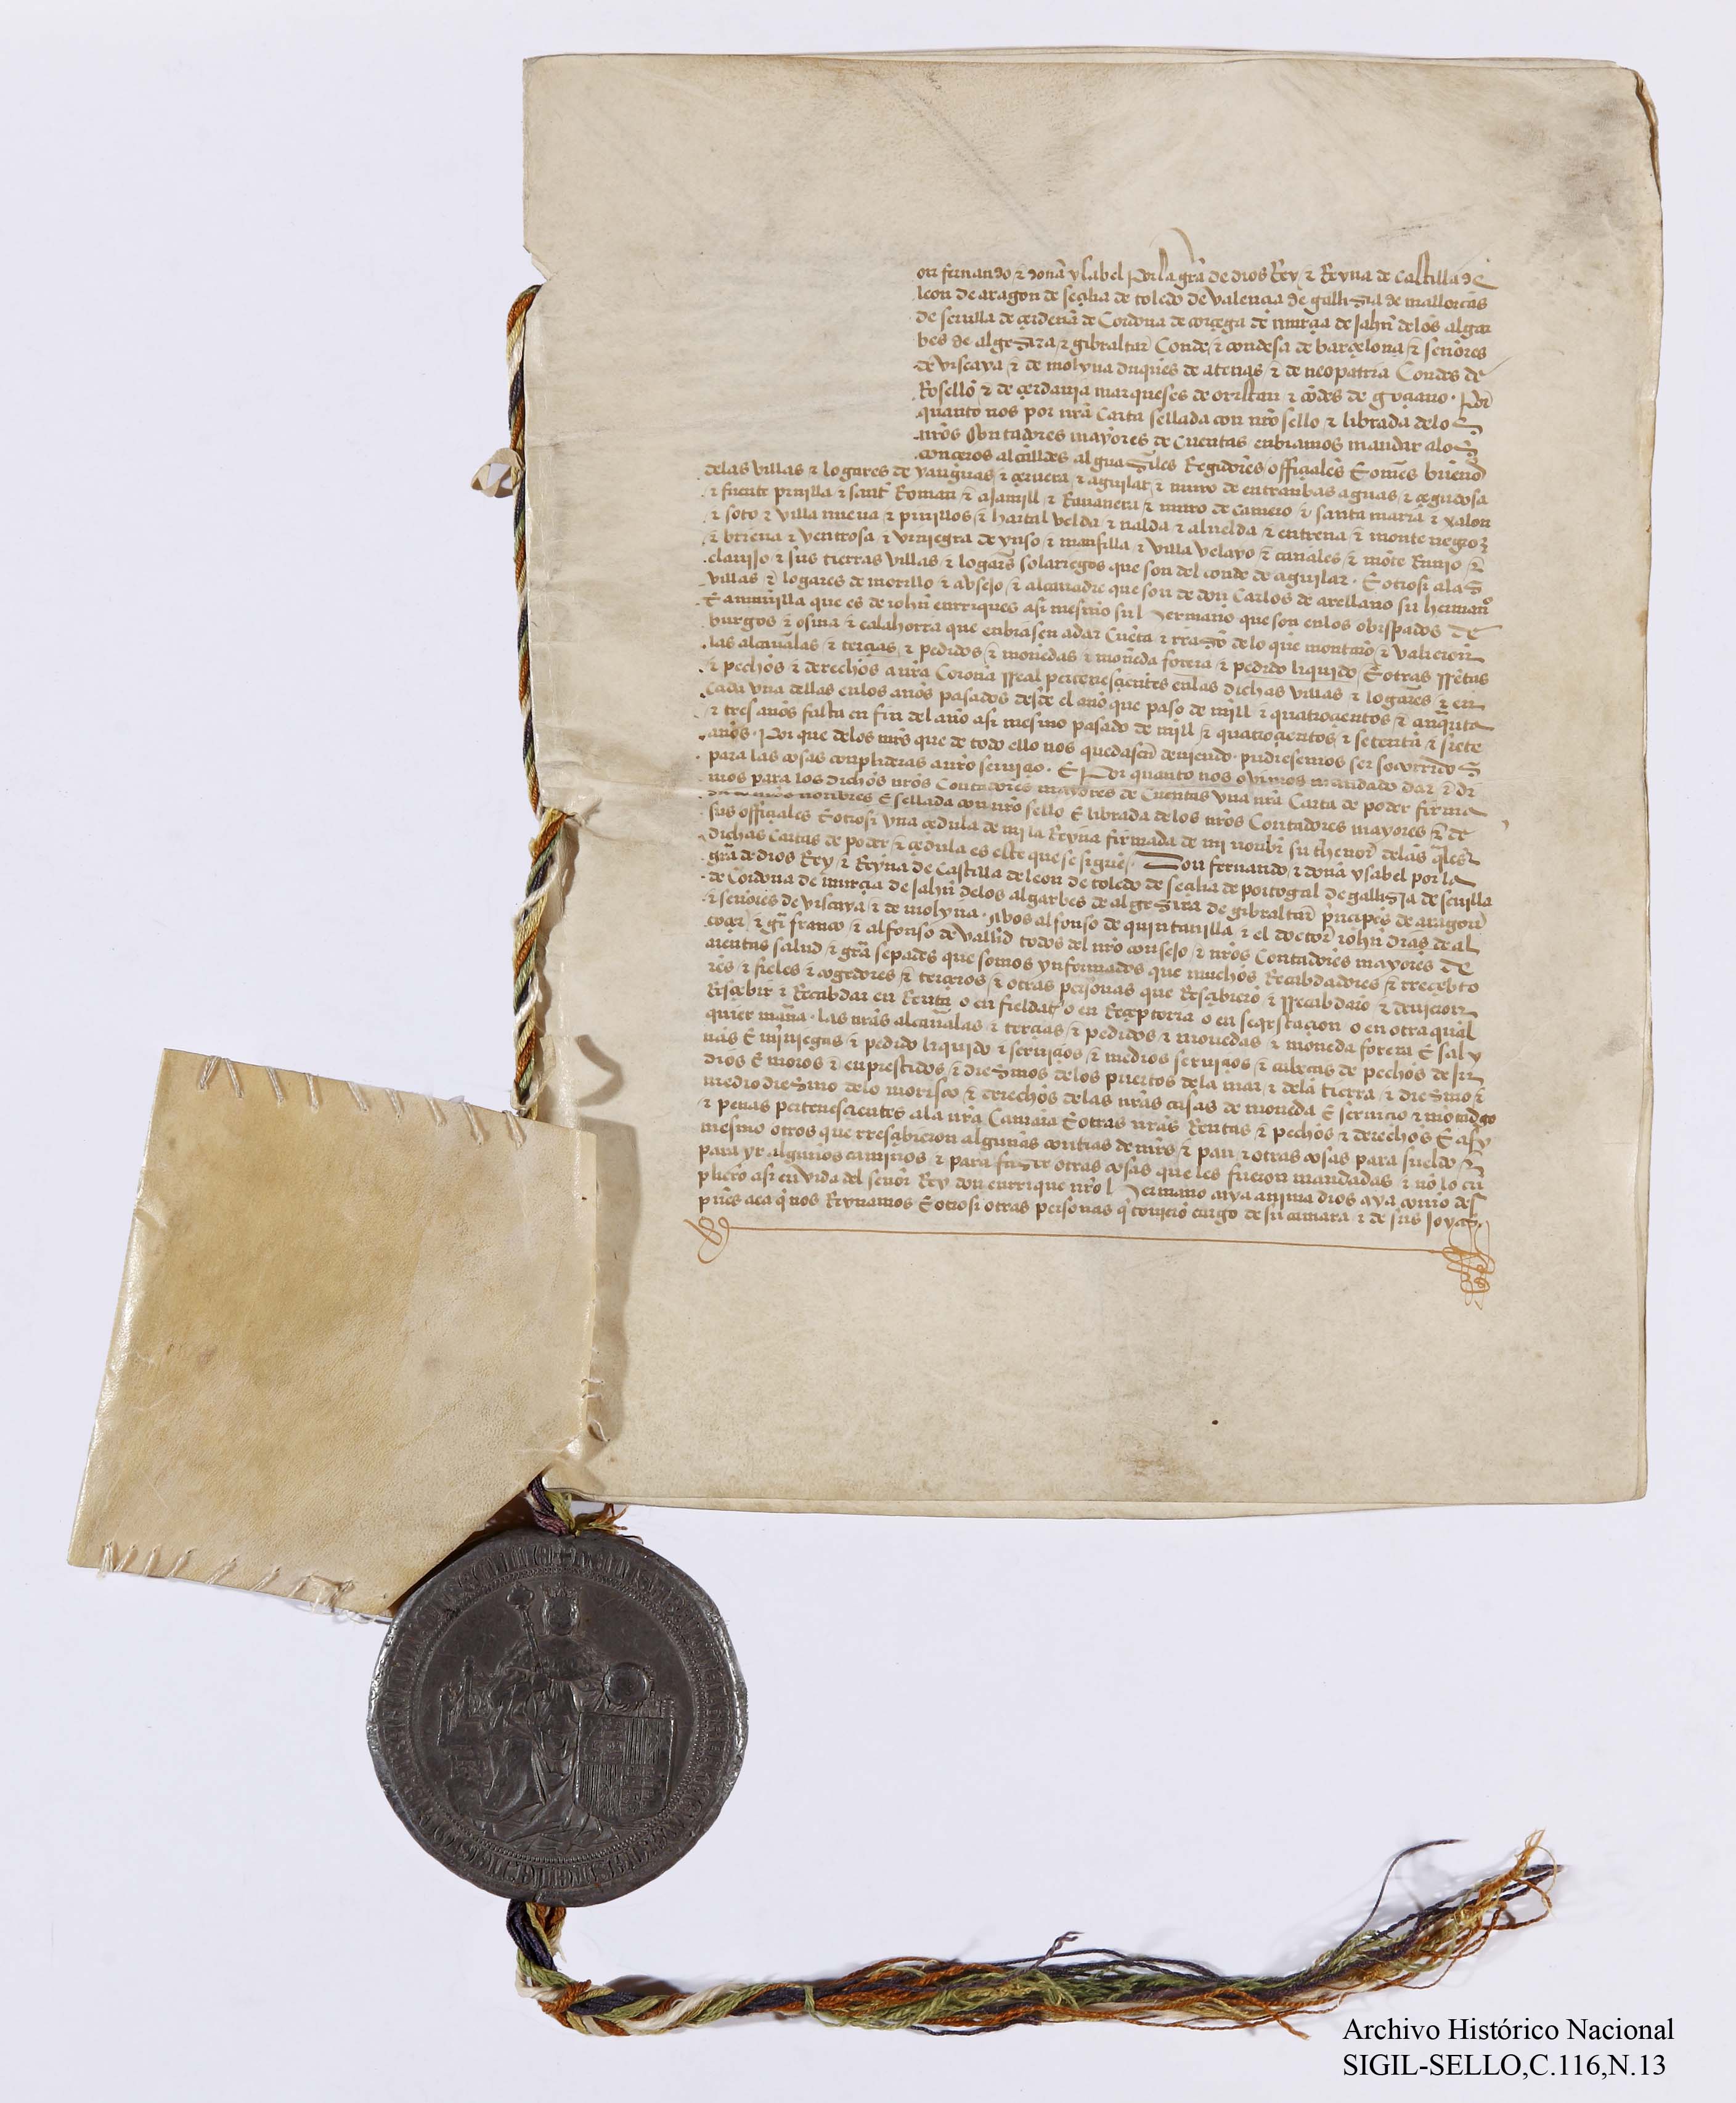 on fernando & doña ysabel por la grã de dios Rey & Reyna de castilla de
leon de aragon de seçilia de toledo de valençia de gallizia de mallorcas
de seuilla de çerdeña de Cordoua de corçega de murçia de jahñ delos algar
bes de algezira & gibraltar Conde & condesa de barçelona & señores
de viscaya & de molyna duques de atenas & de neopatria Condes de
Rosellõ & de çerdania marqueses de oristan & cõdes de goçiano. Por
quanto nos por nrã Carta sellada con nrõ sello & librada delos
nrõs Contadores mayores de Cuentas enbiamos mandar alos
conçejos alcalldes alguaziles Regidores offiçiales E omẽs buenos
delas villas & logares de yanguas & çeruera & aguilar & muro de entranbas aguas & çigudosa
& fuente pinilla & sant Roman & ajamill & Rauanera & muro de cameio & santa maria & xalon
& soto & villa nueua & pinillos & hartal velda & nalda & aluelda & entrena & monte negro
& brieua & ventrosa & viniegra de yuso & mansilla & villa velayo & canales & mõte Rubio &
clauijo & sus tierras villas & logarẽs solariegos que son del conde de aguilar. E otrosi alas
villas & logares de morillo & absejo & alcanadre que son de don Carlos de arellano su hermano
& amunilla que es de iohñ enrriques asi mesmo su hermano que son enlos obispados de
burgos & osma & calahorra que enbiasen adar Cuẽta & rrazõ delo que montarõ & valieron
las alcaualas & terçias & pedidos & monedas & moneda forera & pedido liquido E otras rrẽtas
& pechos & derechos anrã Corona rreal perteneçientes enlas dichas villas & logares & en
cada vna dellas enlos años pasados desde el año que paso de mill & quatroçientos & çinquẽta
& tres años fasta en fin del año asi mesmo pasado de mill & quatroçientos & setenta & siete
años. Por que delos mrs que de todo ello nos quedasen deuiendo pudiesemos ser socorridos
para las cosas conplideras anrõ seruiçio. E Por quanto nos ouimos mandado dar & di
mos para los dichos nrõs Contadores mayores de Cuentas vna nrã Carta de poder firma
da de nrõs nonbres E sellada con nrõ sello E librada delos nrõs Contadores mayores & de
sus offiçiales E otrosi vna çedula de mi la Reyna firmada de mi nonbre su thenor delas qles
dichas Cartas de poder & çedula es este que se sigue. Don fernando & doña ysabel por la
grã de dios Rey & Reyna de Castilla de leon de toledo de seçilia de portogal de gallizia de seuilla
de Cordoua de murçia de jahñ delos algarbes de algezira de gibraltar prinçipes de aragon
& señores de viscaya & de molyna. Avos alfonso de quintanilla & el doctor iohñ dias de al
coçer & gr franco & alfonso de vallid todos del nrõ consejo & nrõs Contadores mayores de
cuentas salud & grã sepades que somos ynformados que muchos Recabdadores & rreçebto
res & fieles & cogedores & terçeros & otras personas que Resçibierõ & rrecabdarõ & deuieron
Resçebir & Recabdar en Renta o en fieldat o en Reçeptoria o en seqrstaçion o en otra qual
quier mañra. las nrãs alcaualas & terçias & pedidos & monedas & moneda forera E saly
nas E myniegas & pedido liquido & seruiçios & medios seruiçios & cabeças de pechos de ju
dios E moros & enprestidos & diezmos delos puertos dela mar & dela tierra & diezmo &
medio diezmo delo morisco & derechos delas nrãs casas de moneda E seruiçio & montadgo
& penas perteneçientes ala nrã Camara E otras nrãs Rentas & pechos & derechos E asy
mesmo otros que rresçibieron algunas contias de mrs & pan & otras cosas para sueldo &
para yr algunos caminos & para fazer otras cosas que les fueron mandadas & nõ lo cũ
plierõ asi en vida del señor Rey don enrrique nrõ hermano cuya anima dios aya como des
pues aca q̃ nos Reynamos E otrosi otras personas q̃ touierõ cargo de su camara & de sus joyas.
Archivo Histórico Nacional
SIGIL-SELLO,C.116,N.13